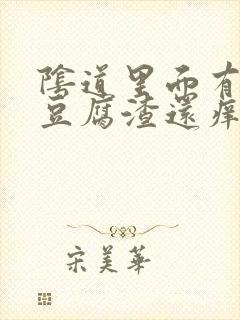 陰道里面有
豆腐渣還痒
宋美華